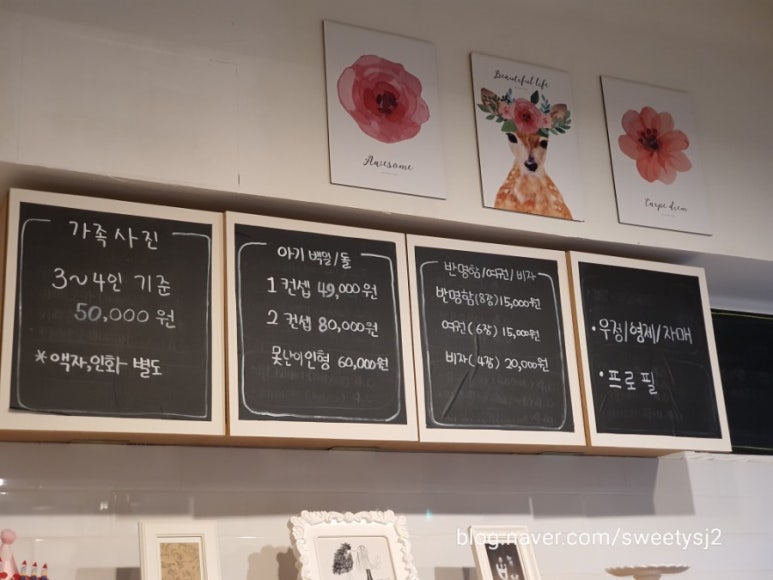 Awesome
Beautiful life
Carpe diem
가족사진
3~4인 기준
50,000원
*액자,인화 별도
아기 백일/돌
1컨셉 49,000원
2컨셉 80,000원
못난이인형 60,000원
반명함/여권/비자
반명함(8장)15,000원
여권(6장) 15,000원
비자(4장) 20,000원
•우정/형제/자매
•프로필
blog.naver.com/sweetysj2